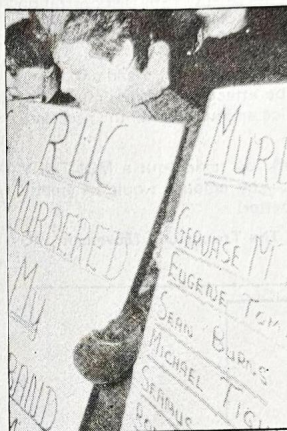 RUC
MURDERED
MY
BAND
MURD
GERVASE M
EUGENE TOM
SEAN BURNS
MICHAEL TIGH
SEAMUS